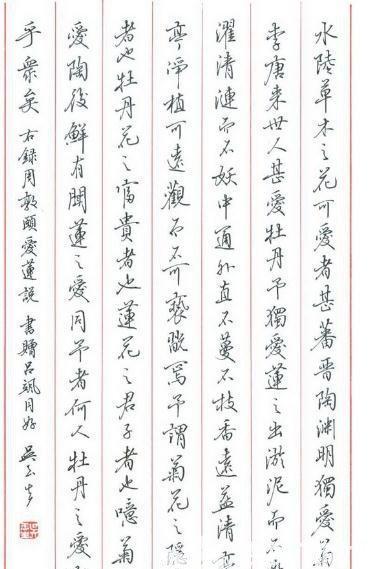 水陸草木之花可愛者甚蕃晋陶渊明獨愛菊
李唐来世人甚愛牡丹予獨愛蓮之出淤泥而不
濯清漣而不妖中通外直不蔓不枝香遠益清亭
亭净植可遠觀而不可褻翫焉予謂菊花之隱
者也牡丹花之富貴者也蓮花之君子者也噫菊
愛陶後鮮有聞蓮之愛同予者何人牡丹之愛
乎衆矣 右録周敦頤愛蓮説 書贈吕飒同好 吴玉生